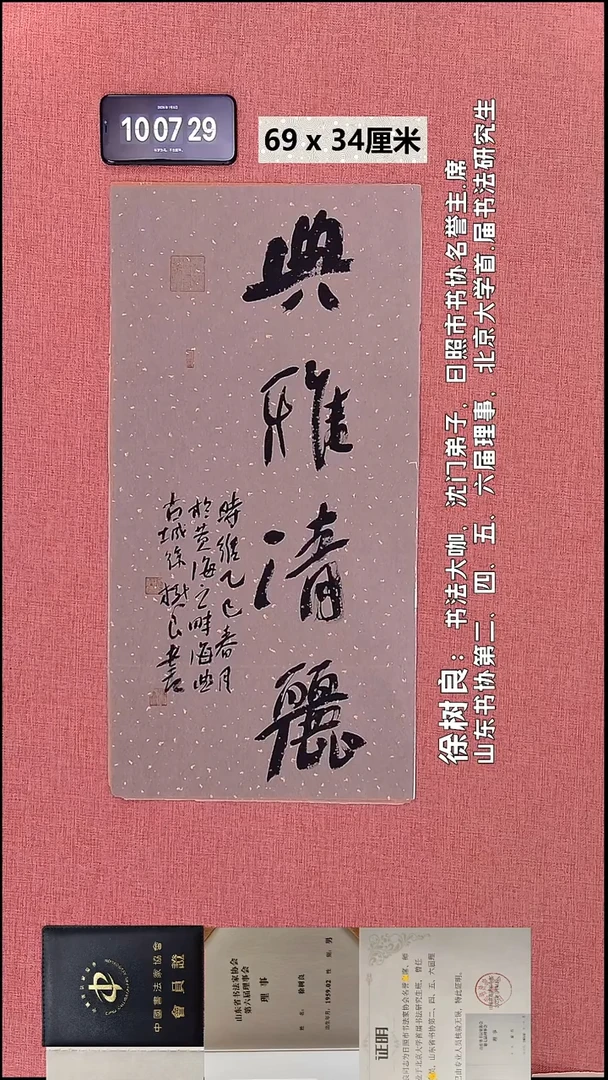 10 07 29
69 x 34厘米
典雅清麗
時維乙巳春月
於黄海之畔海曲
古城徐樹良書
徐树良：书法大咖，沈门弟子，日照市书协名誉主.席
山东书协第二、四、五、六届理事，北京大学首.届书法研究生
中國書法家協會
會員證
山东省书法家协会
第六届理事会
理 事
姓 名：徐树良
出生年月：1959.02 性 别：男
证明